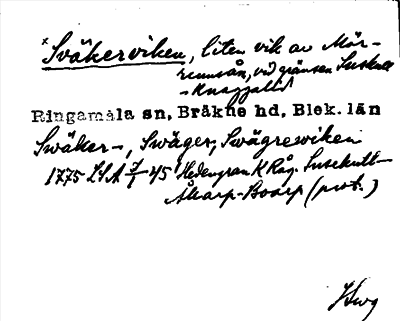 × Sväkerviken, liten vik av Mör-
rumsån, vid gränsen Susekull
-Knaggalid
Ringamåla sn, Bräkne hd, Blek. län
Swäker-, Swäger, Swägreswiken
1775 LSA 7/1-45 Hedengran K Råg. Susekull-
Åkarp-Boarp (prot.)